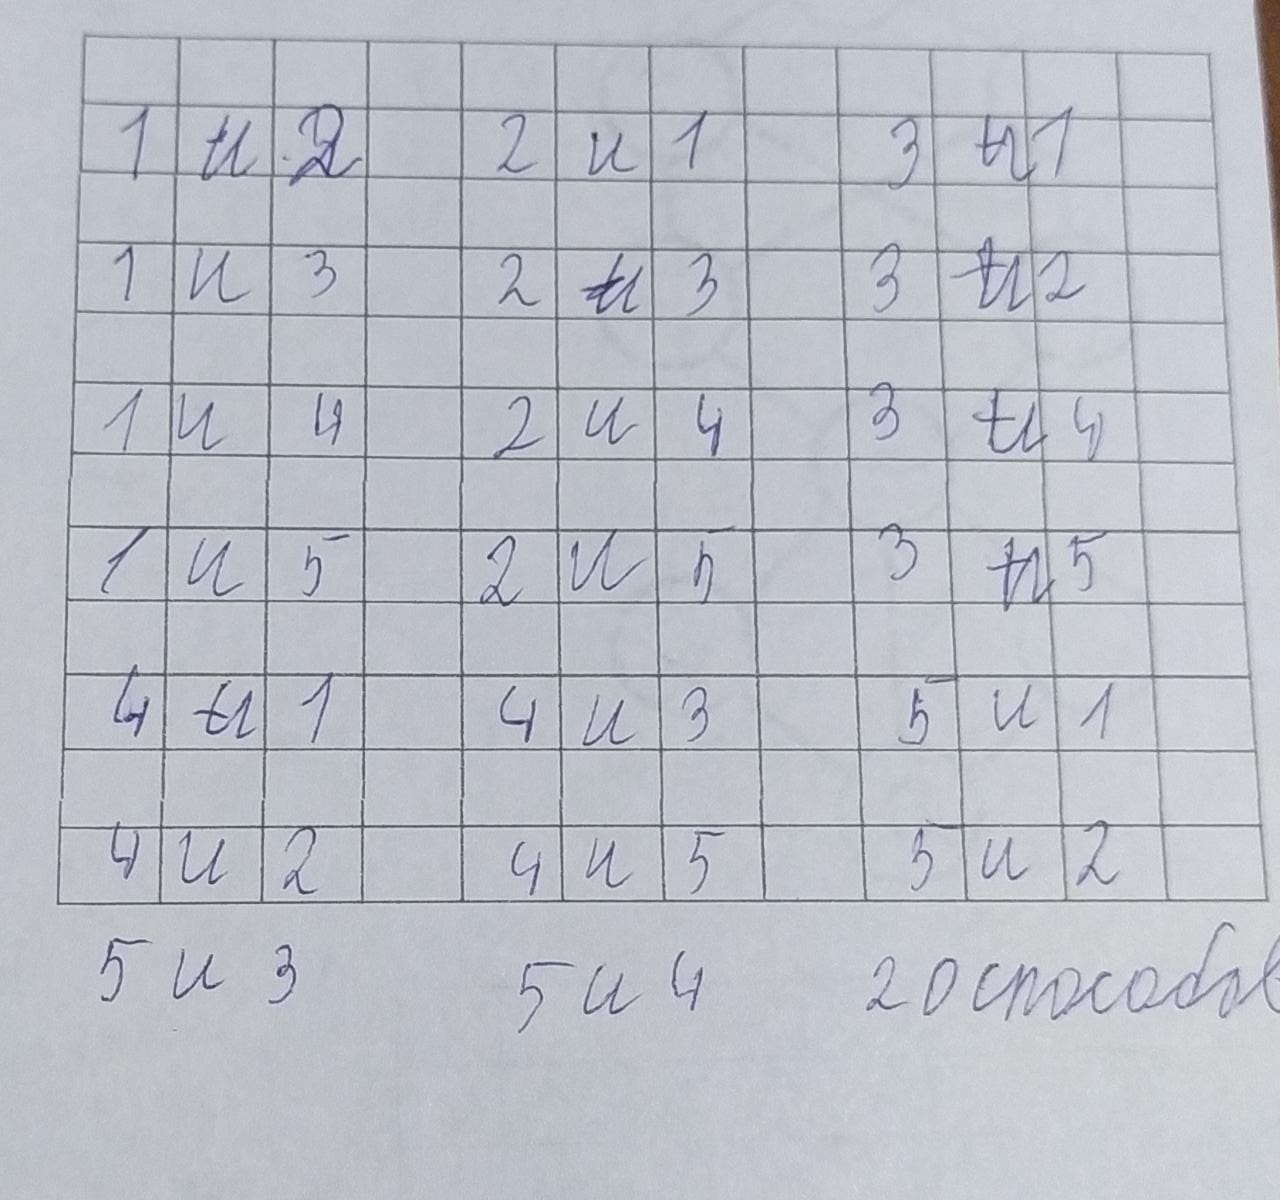 1 и 2 2 и 1 3 и 1
1 и 3 2 и 3 3 и 2
1 и 4 2 и 4 3 и 4
1 и 5 2 и 5 3 и 5
4 и 1 4 и 3 5 и 1
4 и 2 4 и 5 5 и 2
5 и 3 5 и 4 20 способов